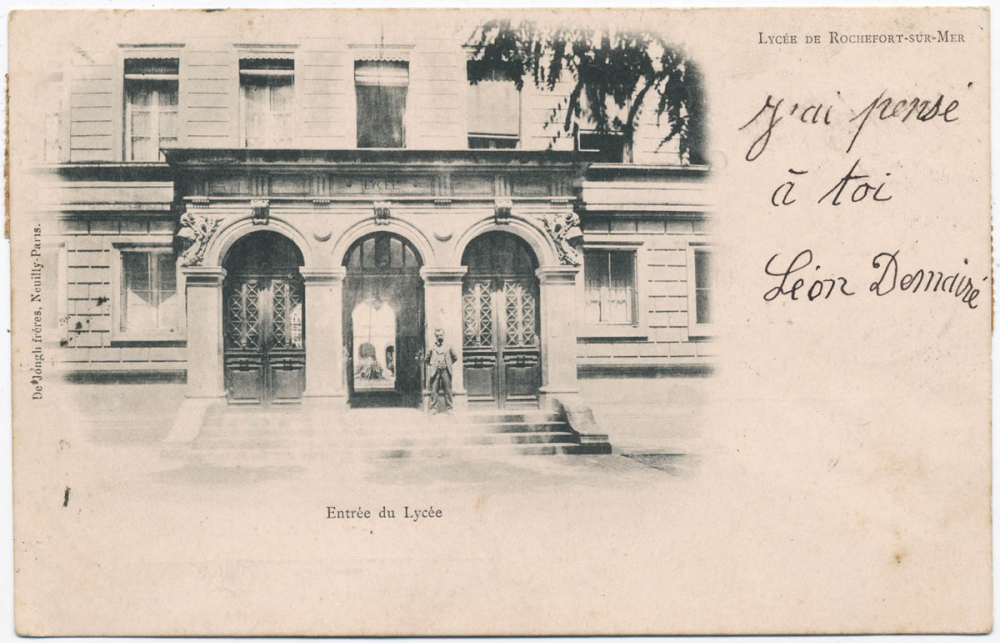 LYCÉE DE ROCHEFORT-SUR-MER
J'ai pensé
à toi
Léon Domairé
LYCÉE
De Jongh frères, Neuilly-Paris.
Entrée du Lycée